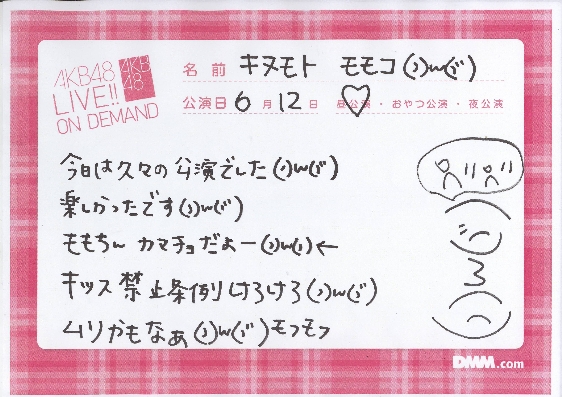 AKB48
LIVE!!
ON DEMAND
AKB
48
名前 キヌモト モモコ(ง)ω(ว)
公演日 6月12日 昼公演・おやつ公演・夜公演
今日は久々の公演でした(ง)ω(ว)
楽しかったです(ง)ω(ว)
ももちん カマチョだよー(ง)ω(ง)←
キッス禁止条例りけろけろ(ง)ω(ว)
ムリかもなぁ(ง)ω(ว)モフモフ
DMM.com